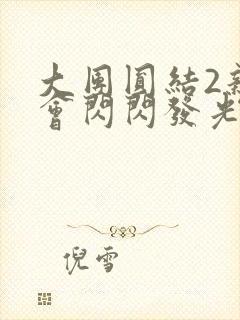 大團圓結2新
會閃閃發光
倪雪